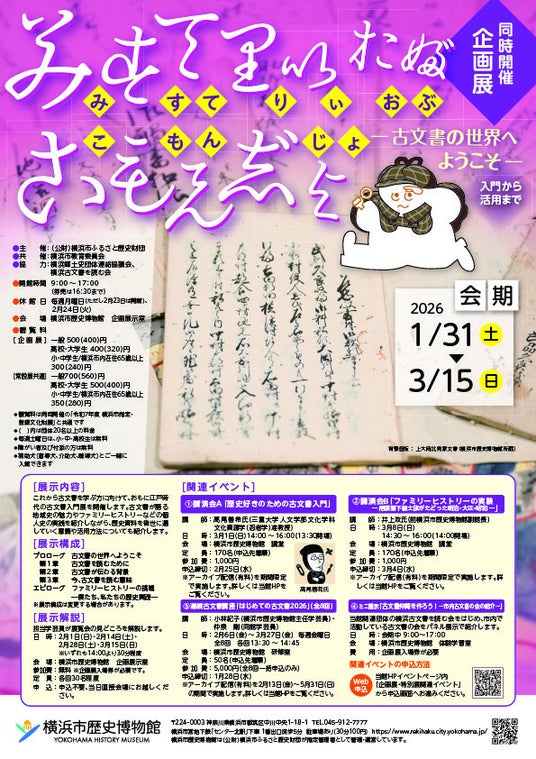 同時開催
企画展
みすてりぃおぶ
こもんじょ
―古文書の世界へ
ようこそ―
入門から
活用まで
●主　　催：(公財)横浜市ふるさと歴史財団
●共　　催：横浜市教育委員会
●協　　力：横浜郷土史団体連絡協議会、
横浜古文書を読む会
●開館時間　9:00～17:00
(券売は16:30まで)
●休 館 日　毎週月曜日(ただし2月23日は開館)、
2月24日(火)
●会　　場　横浜市歴史博物館　企画展示室
●観 覧 料
[企画展] 一般 500(400)円
高校・大学生 400(320)円
小・中学生/横浜市内在住65歳以上
300(240)円
[常設展共通] 一般700(560)円
高校・大学生 500(400)円
小・中学生/横浜市内在住65歳以上
350(280)円
*( )内は団体20名以上の料金
*毎週土曜日は、小・中・高校生は無料
*障がい者及び付添の方は無料
*補助犬(盲導犬、介助犬、聴導犬)とご一緒に
入館できます
会期
2026
1/31 土
3/15 日
[展示内容]
これから古文書を学ぶ方に向けて、おもに江戸時
代の古文書入門展を開催します。古文書が語る
地域史の魅力やファミリーヒストリーなどの個
人史の実践を紹介しながら、歴史資料を後世に遺
していく意義や活用方法についても紹介します。
[展示構成]
プロローグ　古文書の世界へようこそ
第１章　古文書を読むために
第２章　古文書が伝わる背景
第３章　今、古文書を読む意味
エピローグ　ファミリーヒストリーの挑戦
―僕たち、私たちの歴史実践―
※展示構成は変更する場合があります。
[展示解説]
担当学芸員が展覧会の見どころを解説します。
日　時：2月1日(日)・2月14日(土)・
2月28日(土)・3月15日(日)
※いずれも14:00より30分程度
会　場：横浜市歴史博物館　企画展示室
参加費：無料 ※企画展入場券が必要です。
定　員：各回30名程度
申　込：申込不要、当日直接会場にお越しくだ
さい。
[関連イベント]
①講演会A「歴史好きのための古文書入門」
講　　師：高尾善希氏(三重大学 人文学部文化学科
文化資源学(忍者学)准教授)
日　　時：3月1日(日)14:00～16:00(13:30開場)
会　　場：横浜市歴史博物館　講堂
定　　員：170名(申込先着順)
参 加 費：1,000円
申込締切：2月25日(水)
※アーカイブ配信(有料)を期間限定
で実施します。詳しくは当館HPを
ご覧ください。
高尾善希氏
③連続古文書講座「はじめての古文書2026」(全8回)
講　　師：小林紀子(横浜市歴史博物館主任学芸員)・
仲泉　剛(同館学芸員)
日　　時：2月6日(金)～3月27日(金)　毎週金曜日
全8回　各回13:30～14:45
会　　場：横浜市歴史博物館　研修室
定　　員：50名(申込先着順)
参 加 費：5,000円(全8回一括申込のみ)
申込締切：1月28日(水)
※アーカイブ配信(有料)を2月13日(金)～5月31日(日)
の期間で実施します。詳しくは当館HPをご覧ください。
②講演会B「ファミリーヒストリーの実験
講　　師：井上攻氏(前横浜市歴史博物館副館長)
日　　時：3月8日(日)
14:30～16:00(14:00開場)
会　　場：横浜市歴史博物館　講堂
定　　員：170名(申込先着順)
参 加 費：1,000円
申込締切：3月4日(水)
※アーカイブ配信(有料)を期間限定で実施します。詳し
くは当館HPをご覧ください。
④ミニ展示「古文書仲間を作ろう!―市内古文書の会の紹介―」
当館関連団体の横浜古文書を読む会をはじめ、市内で
活動している古文書の会をパネル展示で紹介します。
日　　時：会期中 9:00～17:00
会　　場：横浜市歴史博物館　体験学習室
費　　用：企画展入場券が必要
関連イベントの申込方法
Web
申込
当館HPイベントページ内
「企画展・特別展関連イベント」
から申込画面へお進みください。
横浜市歴史博物館
YOKOHAMA HISTORY MUSEUM
〒224-0003 神奈川県横浜市都筑区中川中央1-18-1 TEL 045-912-7777
横浜市営地下鉄「センター北駅」下車 1番出口徒歩5分　駐車場あり(30分100円)　https://www.rekihaku.city.yokohama.jp/
横浜市歴史博物館は(公財)横浜市ふるさと歴史財団が指定管理者として管理・運営しています。